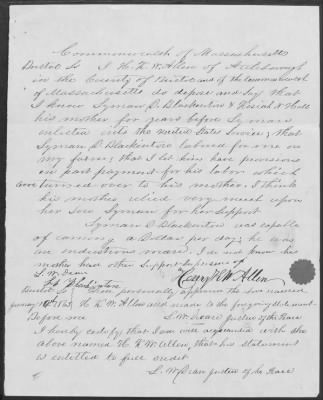 Commonwealth of Massachusetts
Bristol Ss I H. K. W. Allen of Attleborough
in the County of Bristol and of the Commonwealth
of Massachusetts do depose and say that
I knew Lyman D. Blackinton &
his mother for years before Lyman
enlisted into the United States Service; that
Lyman D. Blackinton labored for me on
my farm; that I let him have provisions
in part payment for his labor which
were turned over to his mother. I think
his mother relied very much upon
her Son Lyman for her Support
Lyman D. Blackinton was capable
of earning a Dollar per day; he was
an industrious man. I do not know his
mother had other Support. In presence of
L. W. Dean
Blackinton
Henry K W Allen
Bristol Ss Then personally appeared the above named
H. K. W. Allen and made oath to the foregoing statement
Before me L. W. Dean Justice of the Peace
I hereby certify that I am well acquainted with the
above named H. K. W. Allen, that his statement
is entitled to full credit
L. W. Dean Justice of the Peace